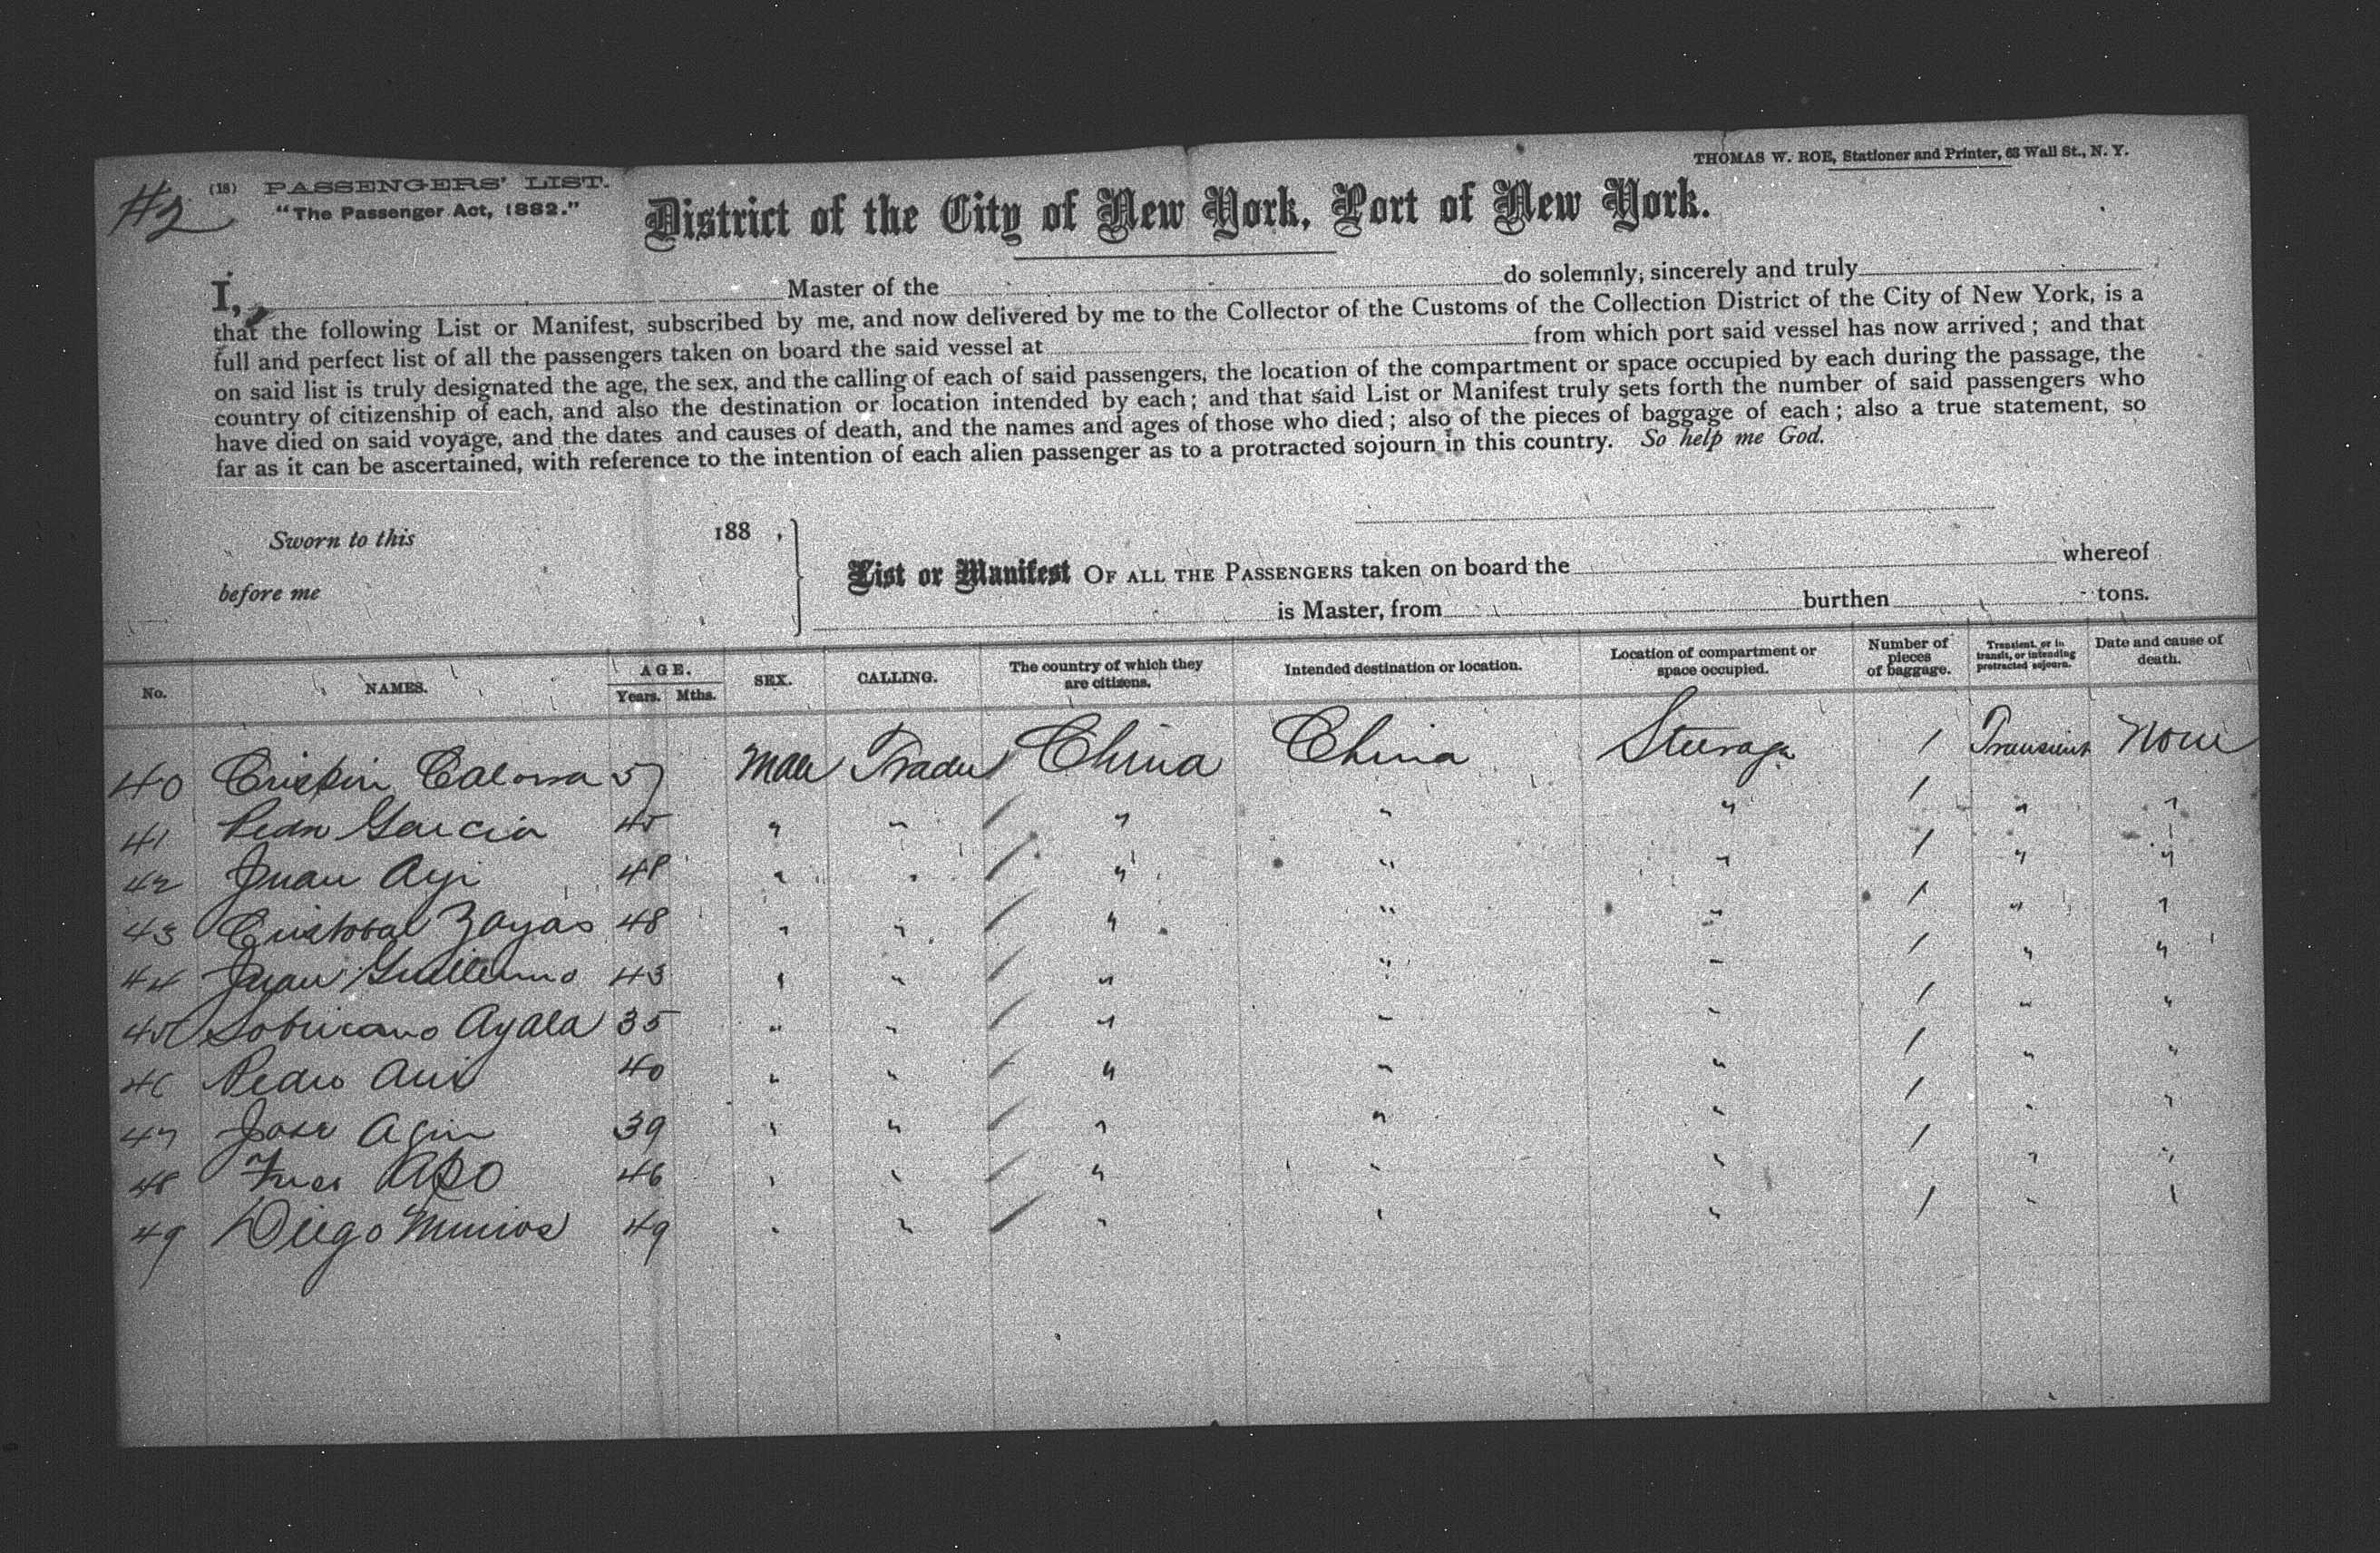 #2 (18) PASSENGERS' LIST.
"The Passenger Act, 1882."
THOMAS W. ROE, Stationer and Printer, 63 Wall St., N. Y.
District of the City of New York, Port of New York.
I, Master of the do solemnly, sincerely and truly
that the following List or Manifest, subscribed by me, and now delivered by me to the Collector of the Customs of the Collection District of the City of New York, is a
full and perfect list of all the passengers taken on board the said vessel at from which port said vessel has now arrived; and that
on said list is truly designated the age, the sex, and the calling of each of said passengers, the location of the compartment or space occupied by each during the passage, the
country of citizenship of each, and also the destination or location intended by each; and that said List or Manifest truly sets forth the number of said passengers who
have died on said voyage, and the dates and causes of death, and the names and ages of those who died; also of the pieces of baggage of each; also a true statement, so
far as it can be ascertained, with reference to the intention of each alien passenger as to a protracted sojourn in this country. So help me God.
Sworn to this 188 ,
before me
List or Manifest OF ALL THE PASSENGERS taken on board the whereof
is Master, from burthen tons.
No. NAMES. AGE. Years. Mths. SEX. CALLING. The country of which they are citizens. Intended destination or location. Location of compartment or space occupied. Number of pieces of baggage. Transient, or in transit, or intending protracted sojourn. Date and cause of death.
40 Crispin 57 Male Trader China China Steerage 1 Transient None
41 Pedro Garcia 45 " " " " " 1 " "
42 Juan Ayi 48 " " " " " 1 " "
43 Cristobal Zayas 48 " " " " " 1 " "
44 Juan Guillermo 43 " " " " " 1 " "
45 Ayala 35 " " " " " 1 " "
46 Pedro 40 " " " " " 1 " "
47 Jose 39 " " " " " 1 " "
48 46 " " " " " 1 " "
49 Diego Munos 49 " " " " " 1 " "